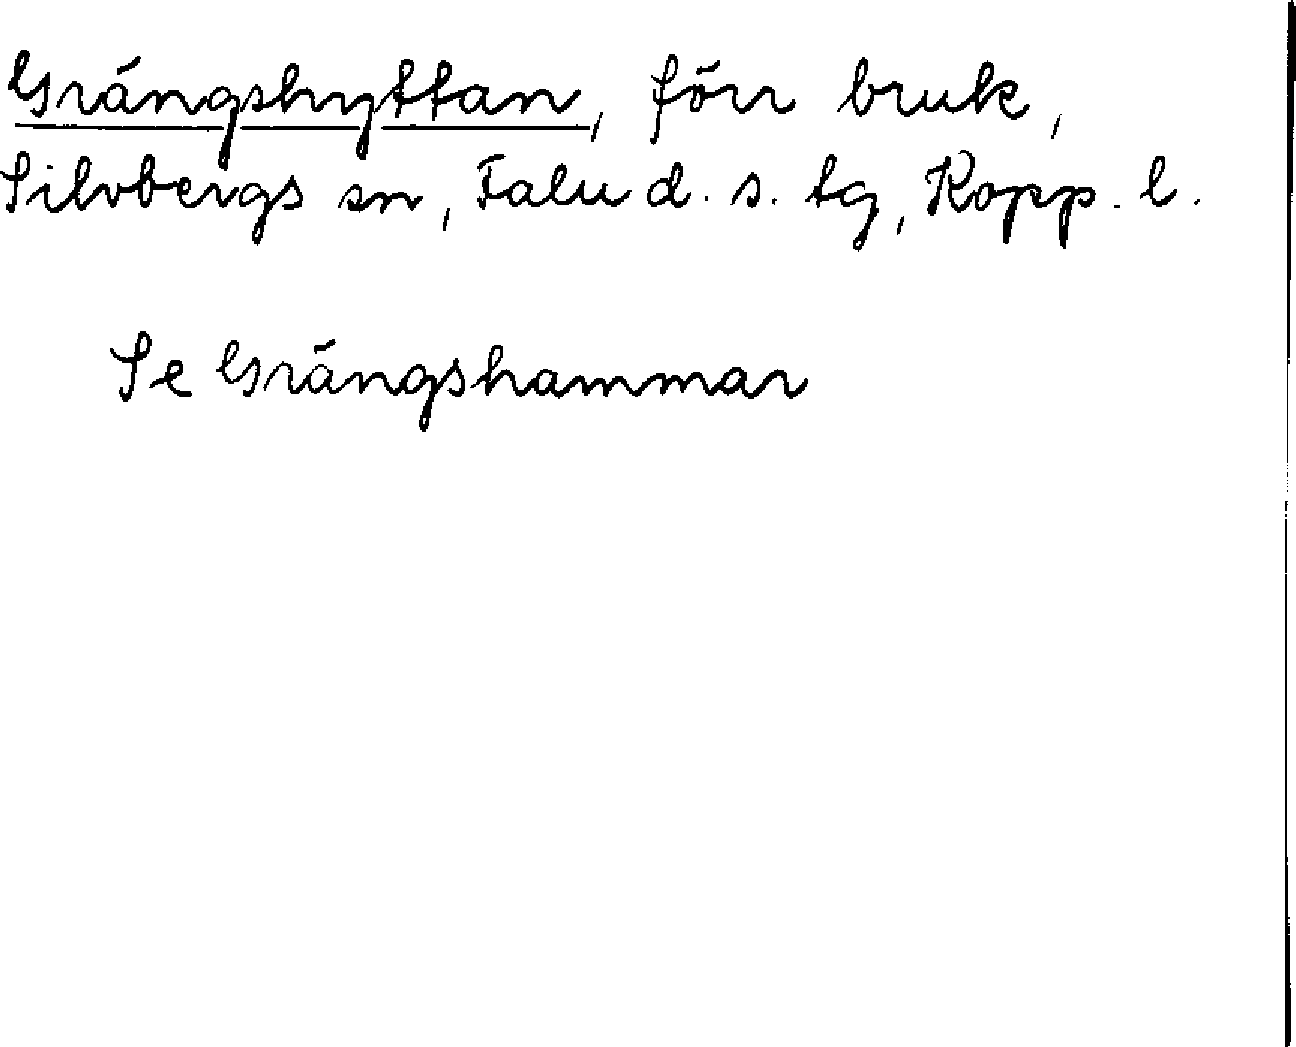 Grängshyttan, förr bruk,
Silvbergs sn, Falu d. s. tg, Kopp. l.
Se Grängshammar